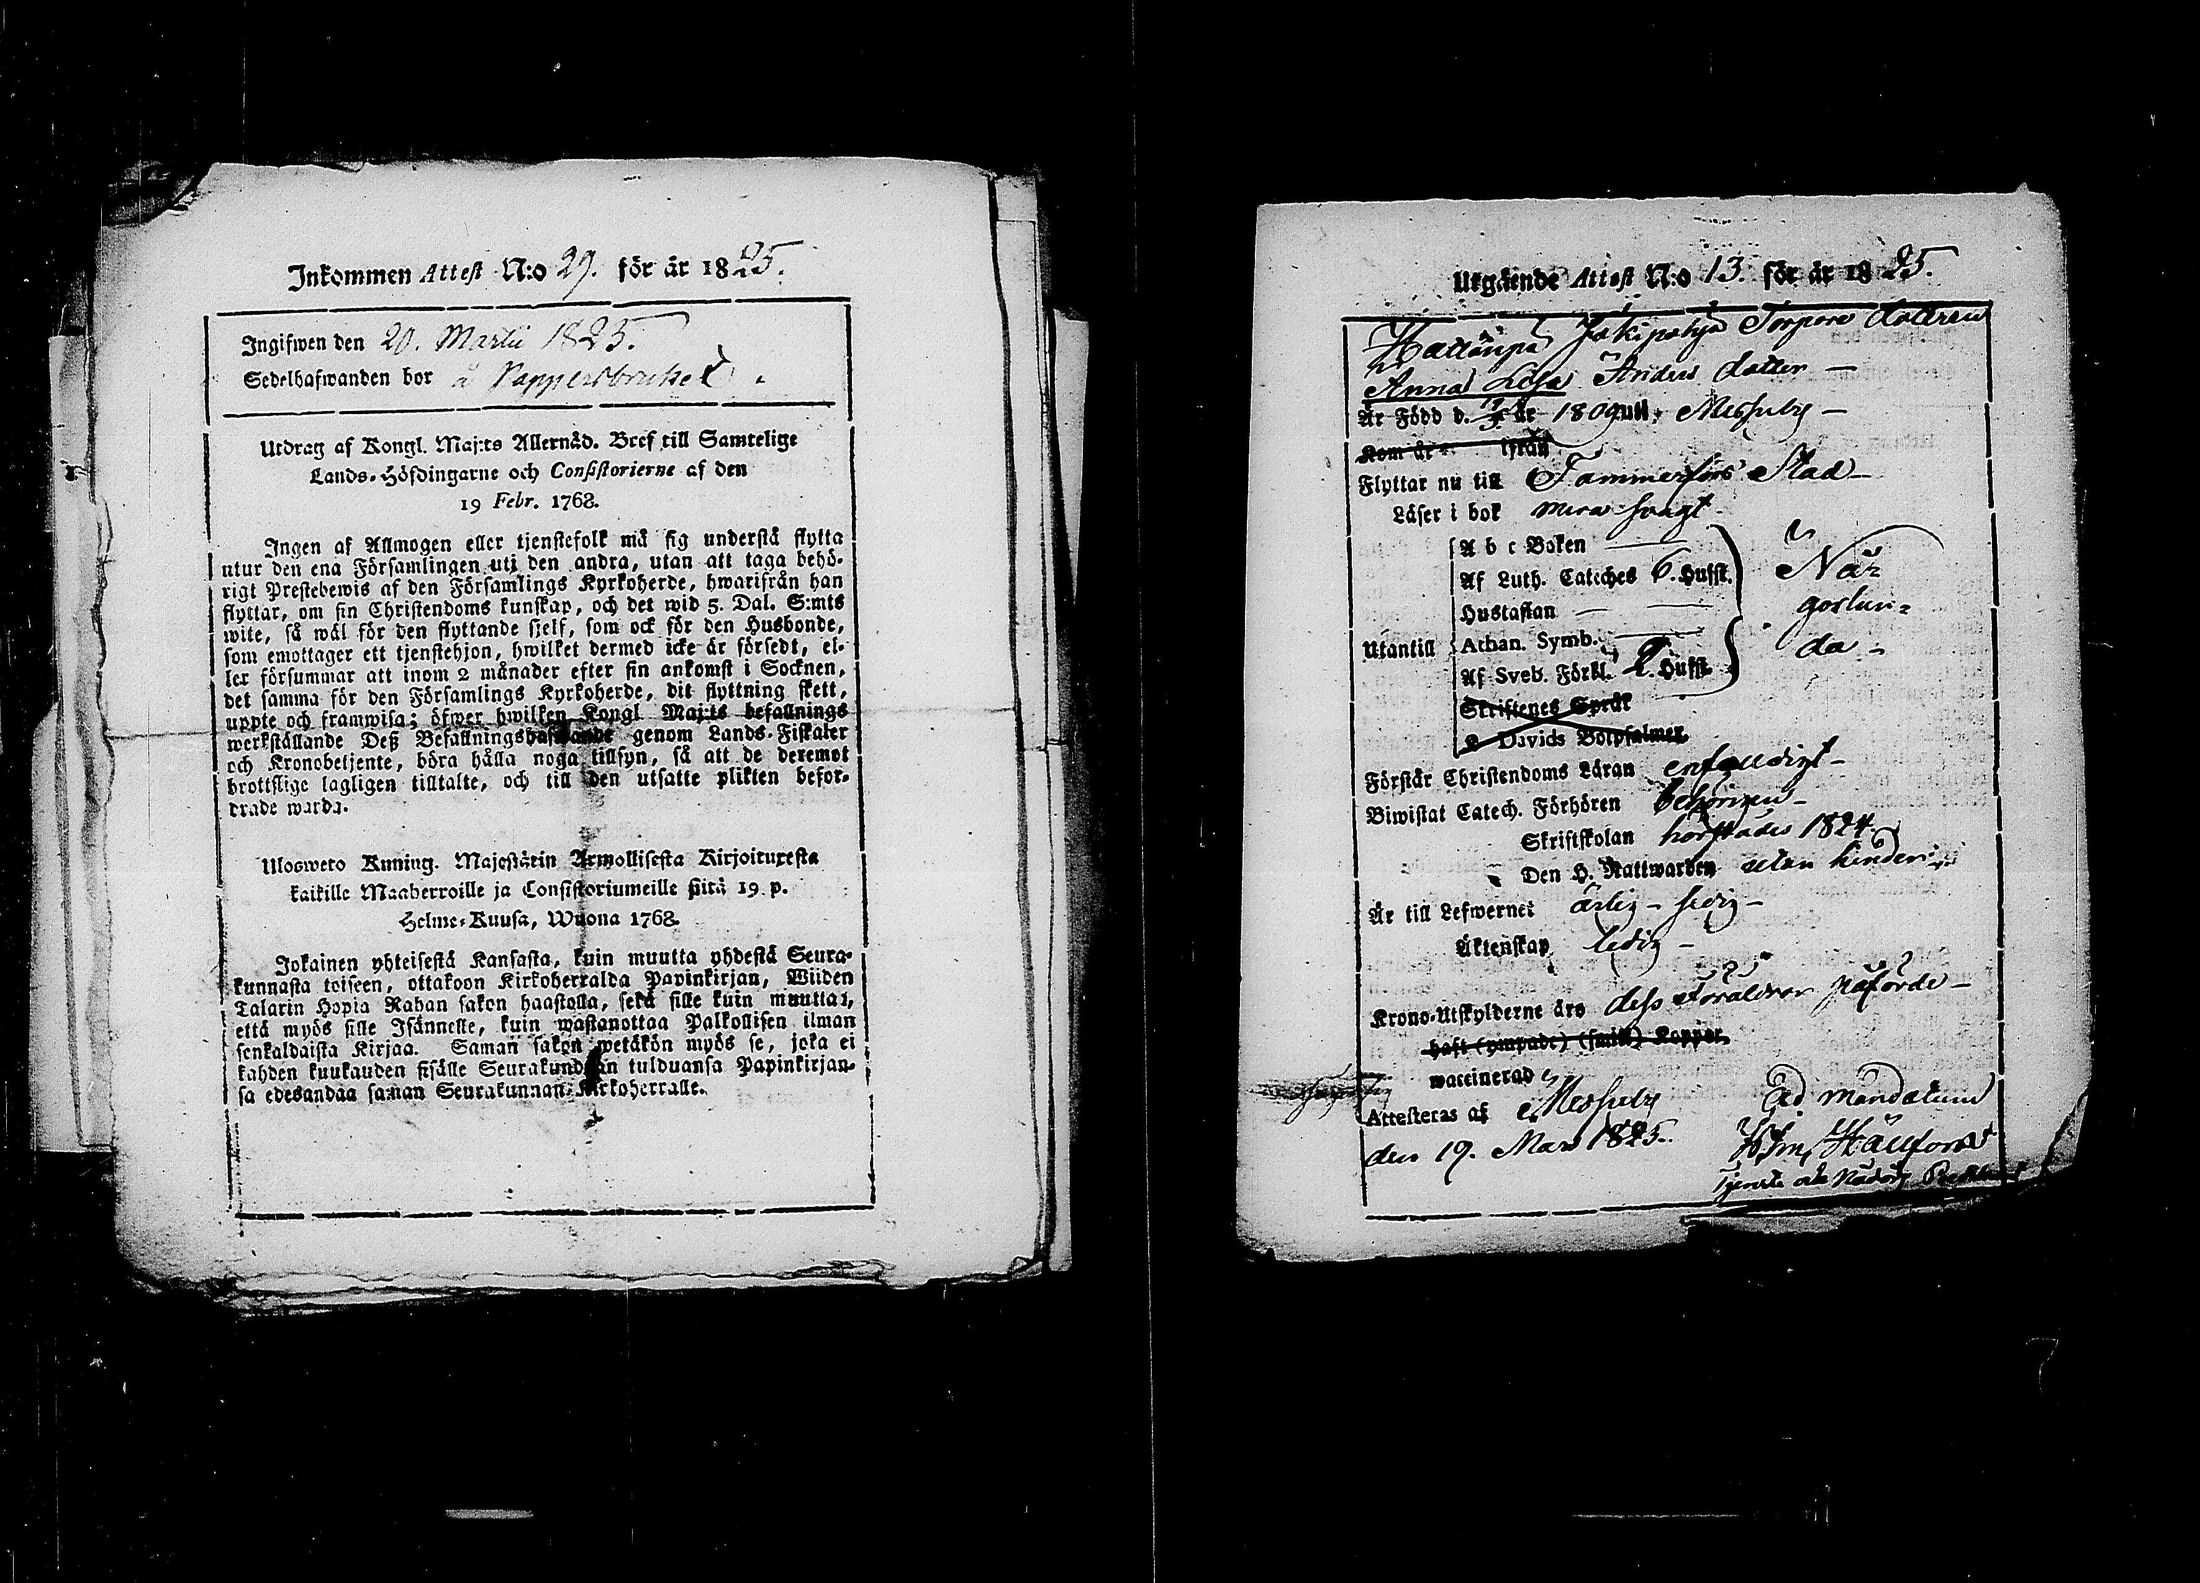 Inkommen Attest N:o 29. för år 1825.
Ingifwen den 20. Martii 1825.
Sedelhafwanden bor å Pappersbruket.
Utdrag af Kongl. Maj:ts Allernåd. Bref till Samtelige
Lands-Höfdingarne och Consistorierne af den
19 Febr. 1768.
Ingen af Allmogen eller tjenstefolk må sig understå flytta
utur den ena Församlingen uti den andra, utan att taga behö-
rigt Prestebewis af den Församlings Kyrkoherde, hwarifrån han
flyttar, om sin Christendoms kunskap, och det wid 5. Dal. S:mts
wite, så wäl för den flyttande sjelf, som ock för den Husbonde,
som emottager ett tjenstehjon, hwilket dermed icke är försedt, el-
ler försummar att inom 2 månader efter sin ankomst i Socknen,
det samma för den Församlings Kyrkoherde, dit flyttning skett,
uppte och framwisa; öfwer hwilken Kongl Maj:ts befallnings
werkställande Deß Befallningshafwande genom Lands-Fiskaler
och Kronobetjente, böra hålla noga tillsyn, så att de deremot
brottslige lagligen tilltalte, och till den utsatte plikten befor-
drade warda.
Ulosweto Kuning. Majestätin Armollisesta Kirjoituxesta
kaikille Maaherroille ja Consistoriumeille siitä 19 p.
Helme-Kuusa, Wuona 1768.
Jokainen yhteisestä Kansasta, kuin muutta yhdestä Seura-
kunnasta toiseen, ottakoon Kirkoherralda Papinkirjan, Wiiden
Talarin Hopia Rahan sakon haastolla, sekä sille kuin muuttaa,
että myös sille Isännelle, kuin wastanottaa Palkollisen ilman
senkaldaista Kirjaa. Saman sakon wetäkön myös se, joka ei
kahden kuukauden sisälle Seurakundaan tulduansa Papinkirjan-
sa edesandaa saman Seurakunnan Kirkoherralle.
Utgående Attest N:o 13. för år 1825.
Hattanpä Jokipohja Torpare dottren
Anna Lisa Anders dotter
Är Född d. år 1809 uti Messuby
Kom år ifrån
Flyttar nu till Tammerfors Stad
Läser i bok mera svagt
A b c Boken
Af Luth. Cateches 6. Hufst.
Hustaflan
Utantill Athan. Symb.
Af Sveb. Förkl. 2. Hufst.
När
gorlun-
da
Skriftenes Språk
Davids Botpsalmer
Förstår Christendoms Läran enfalldigt
Biwistat Catech. Förhören behörigen
Skriftskolan 1824.
Den H. Nattwarden utan hinder
Är till Lefwernet ärlig - sedig
Äktenskap ledig
Krono-Utskylderne äro dess Föräldrar påförde
haft (ympade) (smitt) Koppor,
waccinerad
Attesteras af Messuby Ad mandatum
den 19. Mars 1825. Wm, Hällfors